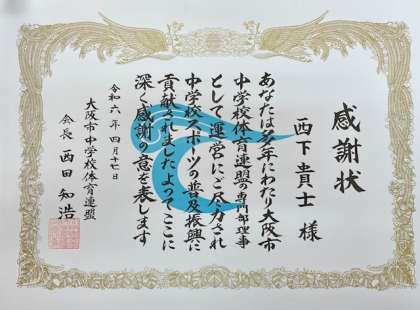 感謝状
西下貴士 様
あなたは多年にわたり大阪市
中学校体育連盟の専門部理事
として運営にご尽力され
中学校スポーツの普及振興に
貢献されましたよってここに
深く感謝の意を表します
令和六年四月十七日
大阪市中学校体育連盟
会長 西田知浩